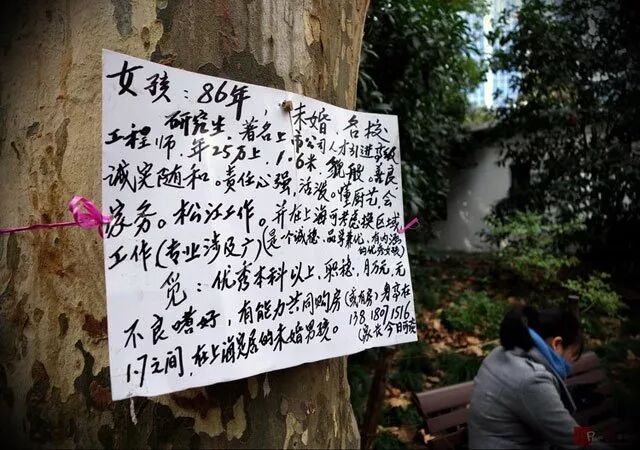 女孩：86年，未婚、名校
研究生，著名上市公司人才引进高级
工程师.年25万上，1.6米，貌般。善良、
诚实随和。责任心强，活泼。懂厨艺，会
家务。松江工作。并在上海可考虑换区域
工作(专业涉及广)(是个诚稳、品学兼优、有内涵
的优秀女孩)
觅：优秀本科以上，职稳，月万元，无
不良嗜好，有能力共同购房(或有房)身高在
1.7之间，在上海定居的未婚男孩。
138 1807 1516
(家长 今日